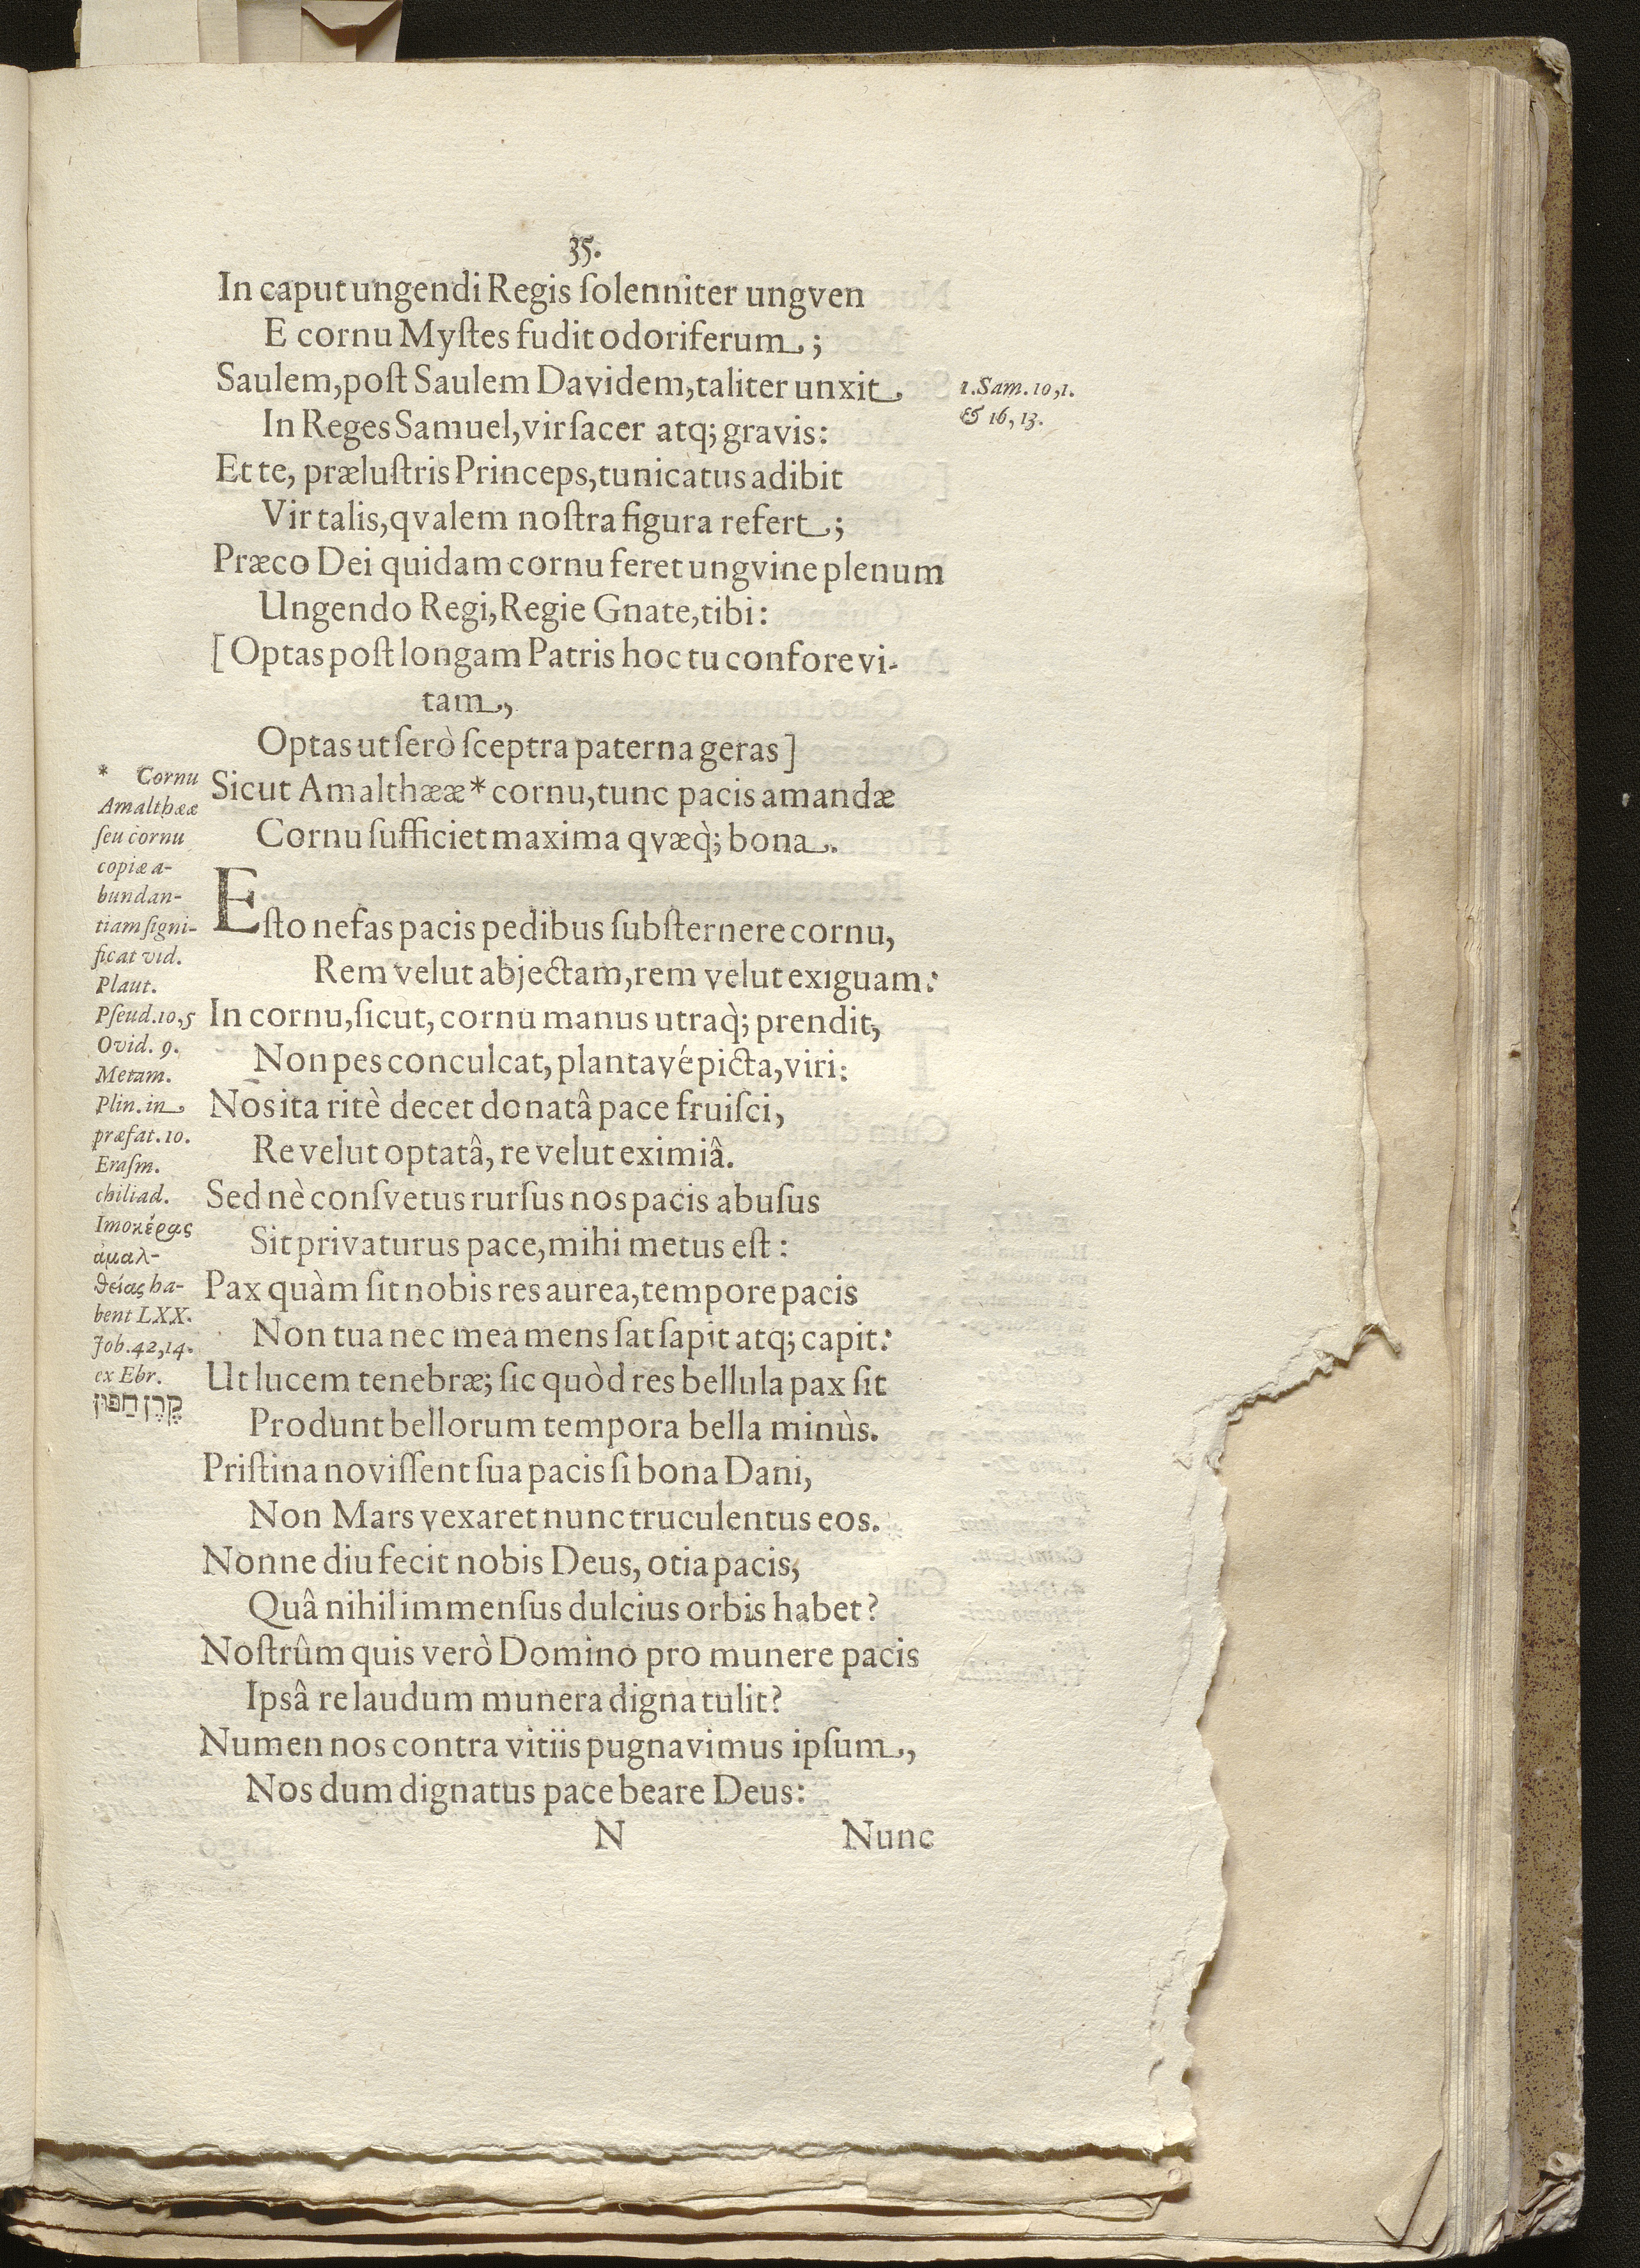 35.
In caput ungendi Regis ſolenniter ungven
E cornu Myſtes fudit odoriferum;
Saulem, poſt Saulem Davidem, taliter unxit
In Reges Samuel, vir ſacer atq; gravis:
Et te, præluſtris Princeps, tunicatus adibit
Vir talis, qvalem noſtra figura refert;
Præco Dei quidam cornu feret ungvine plenum
Ungendo Regi, Regie Gnate, tibi:
[Optas poſt longam Patris hoc tu confore vi-
tam,
Optas ut ſerò ſceptra paterna geras]
Sicut Amalthææ* cornu, tunc pacis amandæ
Cornu ſufficiet maxima qvæq̀; bona.
Eſto nefas pacis pedibus ſubſternere cornu,
Rem velut abjectam, rem velut exiguam:
In cornu, ſicut, cornu manus utraq̀; prendit,
Non pes conculcat, planta vé picta, viri:
Nos ita ritè decet donatâ pace fruiſci,
Re velut optatâ, re velut eximiâ.
Sed nè conſvetus rurſus nos pacis abuſus
Sit privaturus pace, mihi metus eſt:
Pax quàm ſit nobis res aurea, tempore pacis
Non tua nec mea mens ſat ſapit atq; capit:
Ut lucem tenebræ; ſic quòd res bellula pax ſit
Produnt bellorum tempora bella minùs.
Priſtina noviſſent ſua pacis ſi bona Dani,
Non Mars vexaret nunc truculentus eos.
Nonne diu fecit nobis Deus, otia pacis,
Quâ nihil immenſus dulcius orbis habet?
Noſtrûm quis verò Domino pro munere pacis
Ipsâ re laudum munera digna tulit?
Numen nos contra vitiis pugnavimus ipſum,
Nos dum dignatus pace beare Deus:
N Nunc
1. Sam. 10, 1.
& 16, 13.
* Cornu
Amalthææ
ſeu cornu
copiæ a-
bundan-
tiam ſigni-
ficat vid.
Plaut.
Pſeud. 10, 5
Ovid. 9.
Metam.
Plin. in
præfat. 10.
Eraſm.
chiliad.
Imo κέρας
ἀμαλ-
θείας ha-
bent LXX.
Job. 42, 14.
ex Ebr.
קֶרֶן חַפּוּךְ